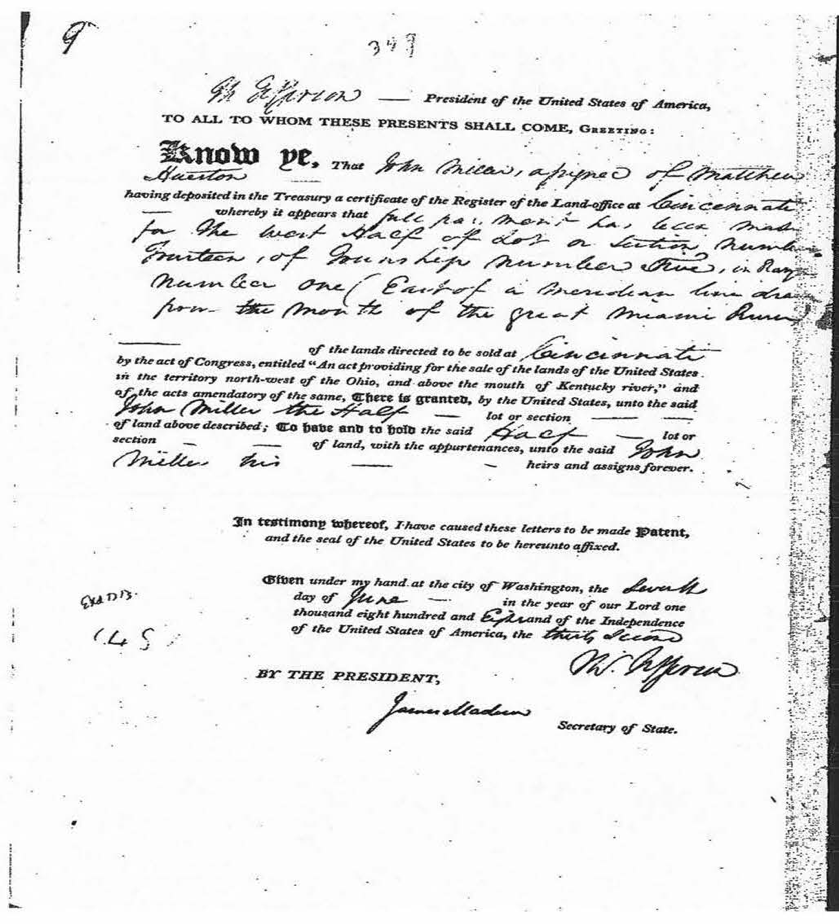 9
349
Th Jefferson — President of the United States of America,
TO ALL TO WHOM THESE PRESENTS SHALL COME, GREETING:
Know ye, That John Miller, assignee of Matthew
Hueston
having deposited in the Treasury a certificate of the Register of the Land-office at Cincinnati
— whereby it appears that full payment has been made
for the West Half of Lot or Section number
fourteen, of Township number Five, in Range
number one (East of a meridian line drawn
from the mouth of the great Miami River
of the lands directed to be sold at Cincinnati
by the act of Congress, entitled "An act providing for the sale of the lands of the United States
in the territory north-west of the Ohio, and above the mouth of Kentucky river," and
of the acts amendatory of the same, There is granted, by the United States, unto the said
John Miller the Half — lot or section —
of land above described; To have and to hold the said Half — lot or
section — — of land, with the appurtenances, unto the said John
Miller his — - heirs and assigns forever.
In testimony whereof, I have caused these letters to be made Patent,
and the seal of the United States to be hereunto affixed.
Given under my hand at the city of Washington, the Seventh
day of June — in the year of our Lord one
thousand eight hundred and Eight and of the Independence
of the United States of America, the thirty Second
(LS)
Th. Jefferson
BY THE PRESIDENT,
James Madison
Secretary of State.